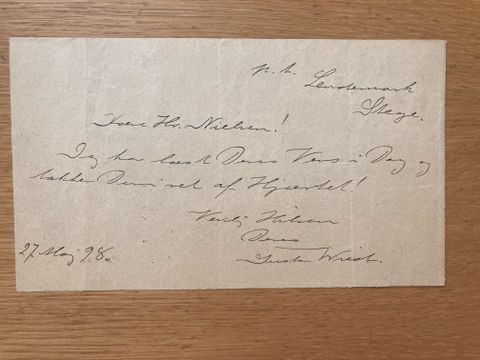 p. t. Lendemark
Stege.
Kære Hr. Nielsen!
Jeg har læst Deres Vers i Dag og
takker Dem ret af Hjærtet!
Venlig Hilsen
Deres
Gustav Wied.
27 Maj 98.